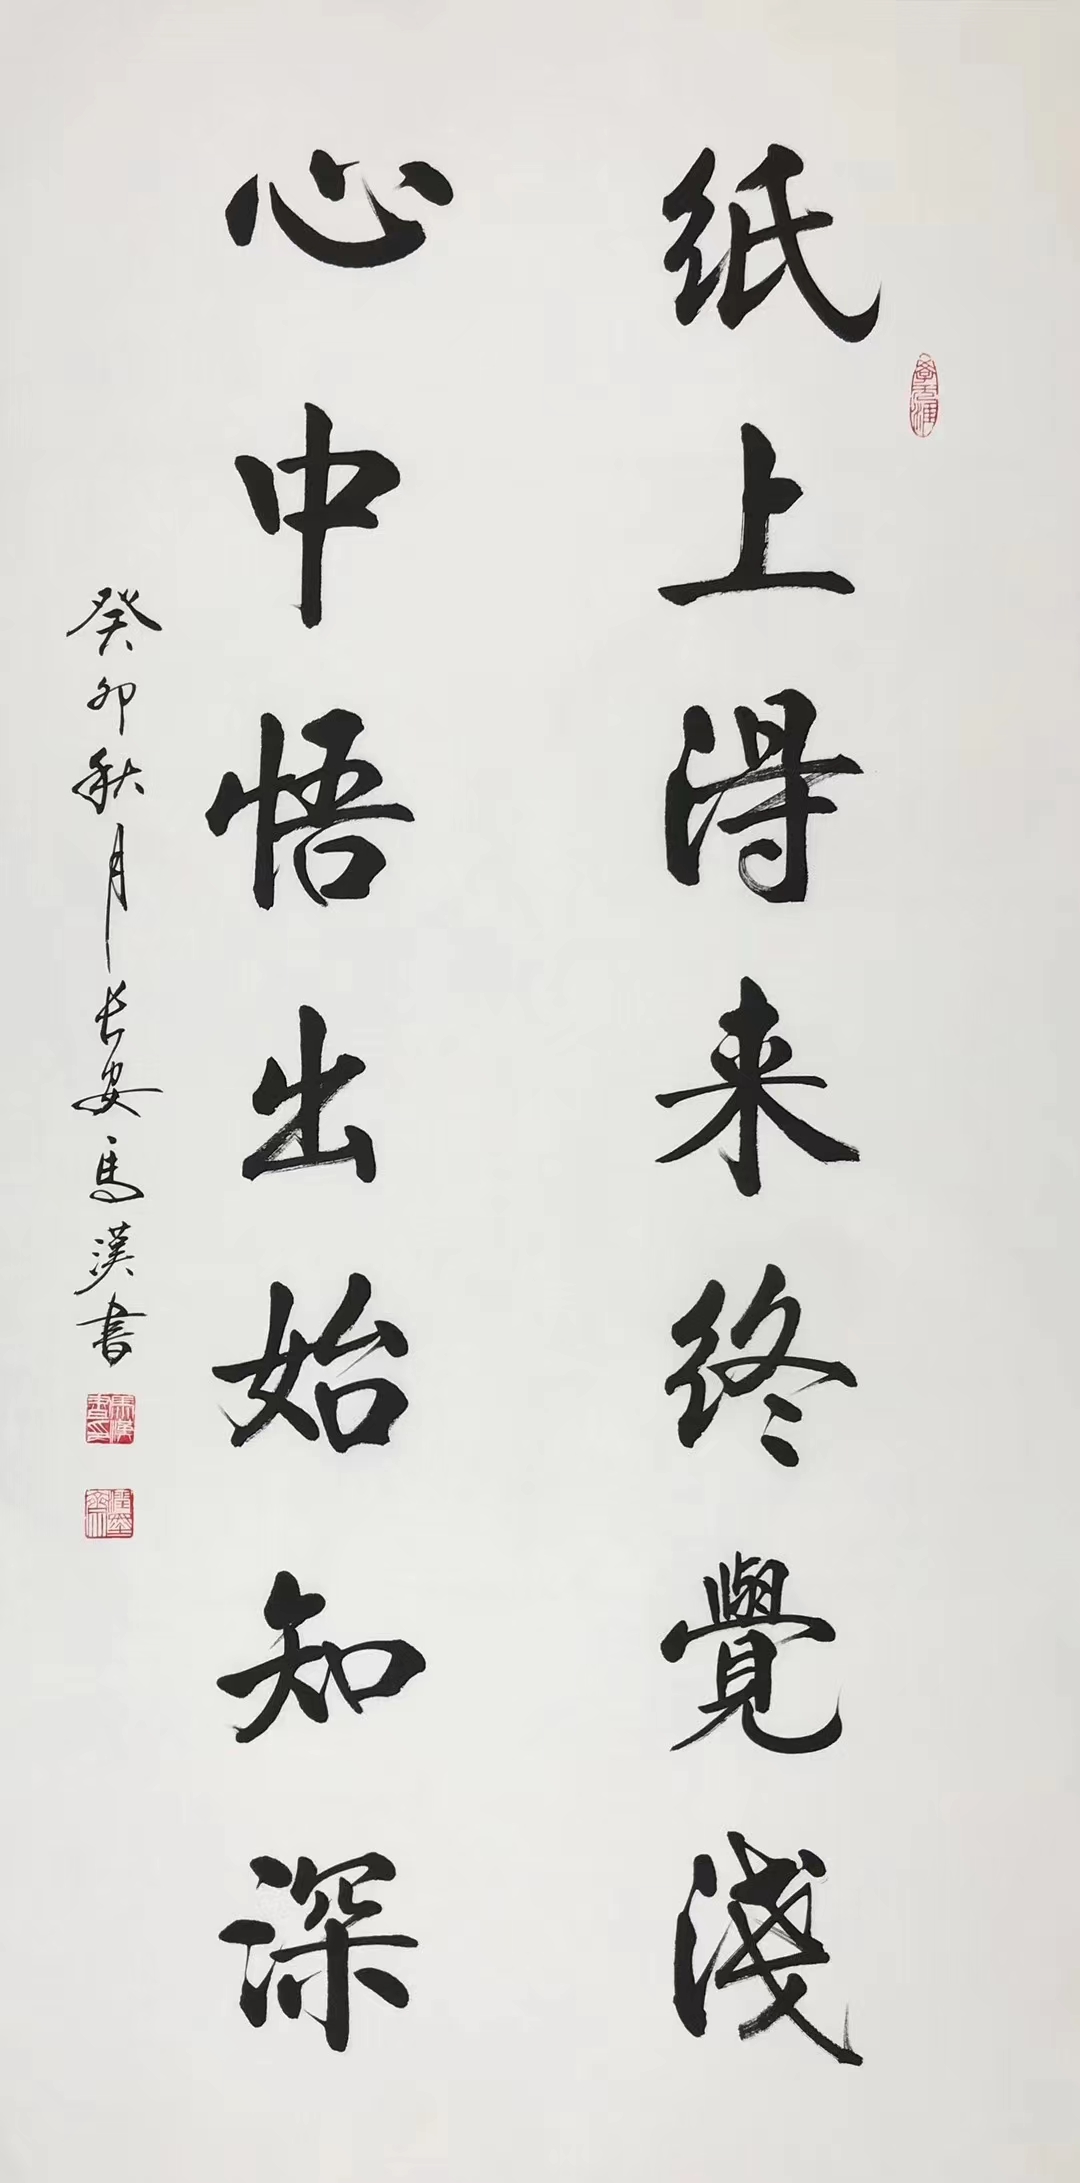 纸上得来终覺淺
心中悟出始知深
癸卯秋月长安馬漢书